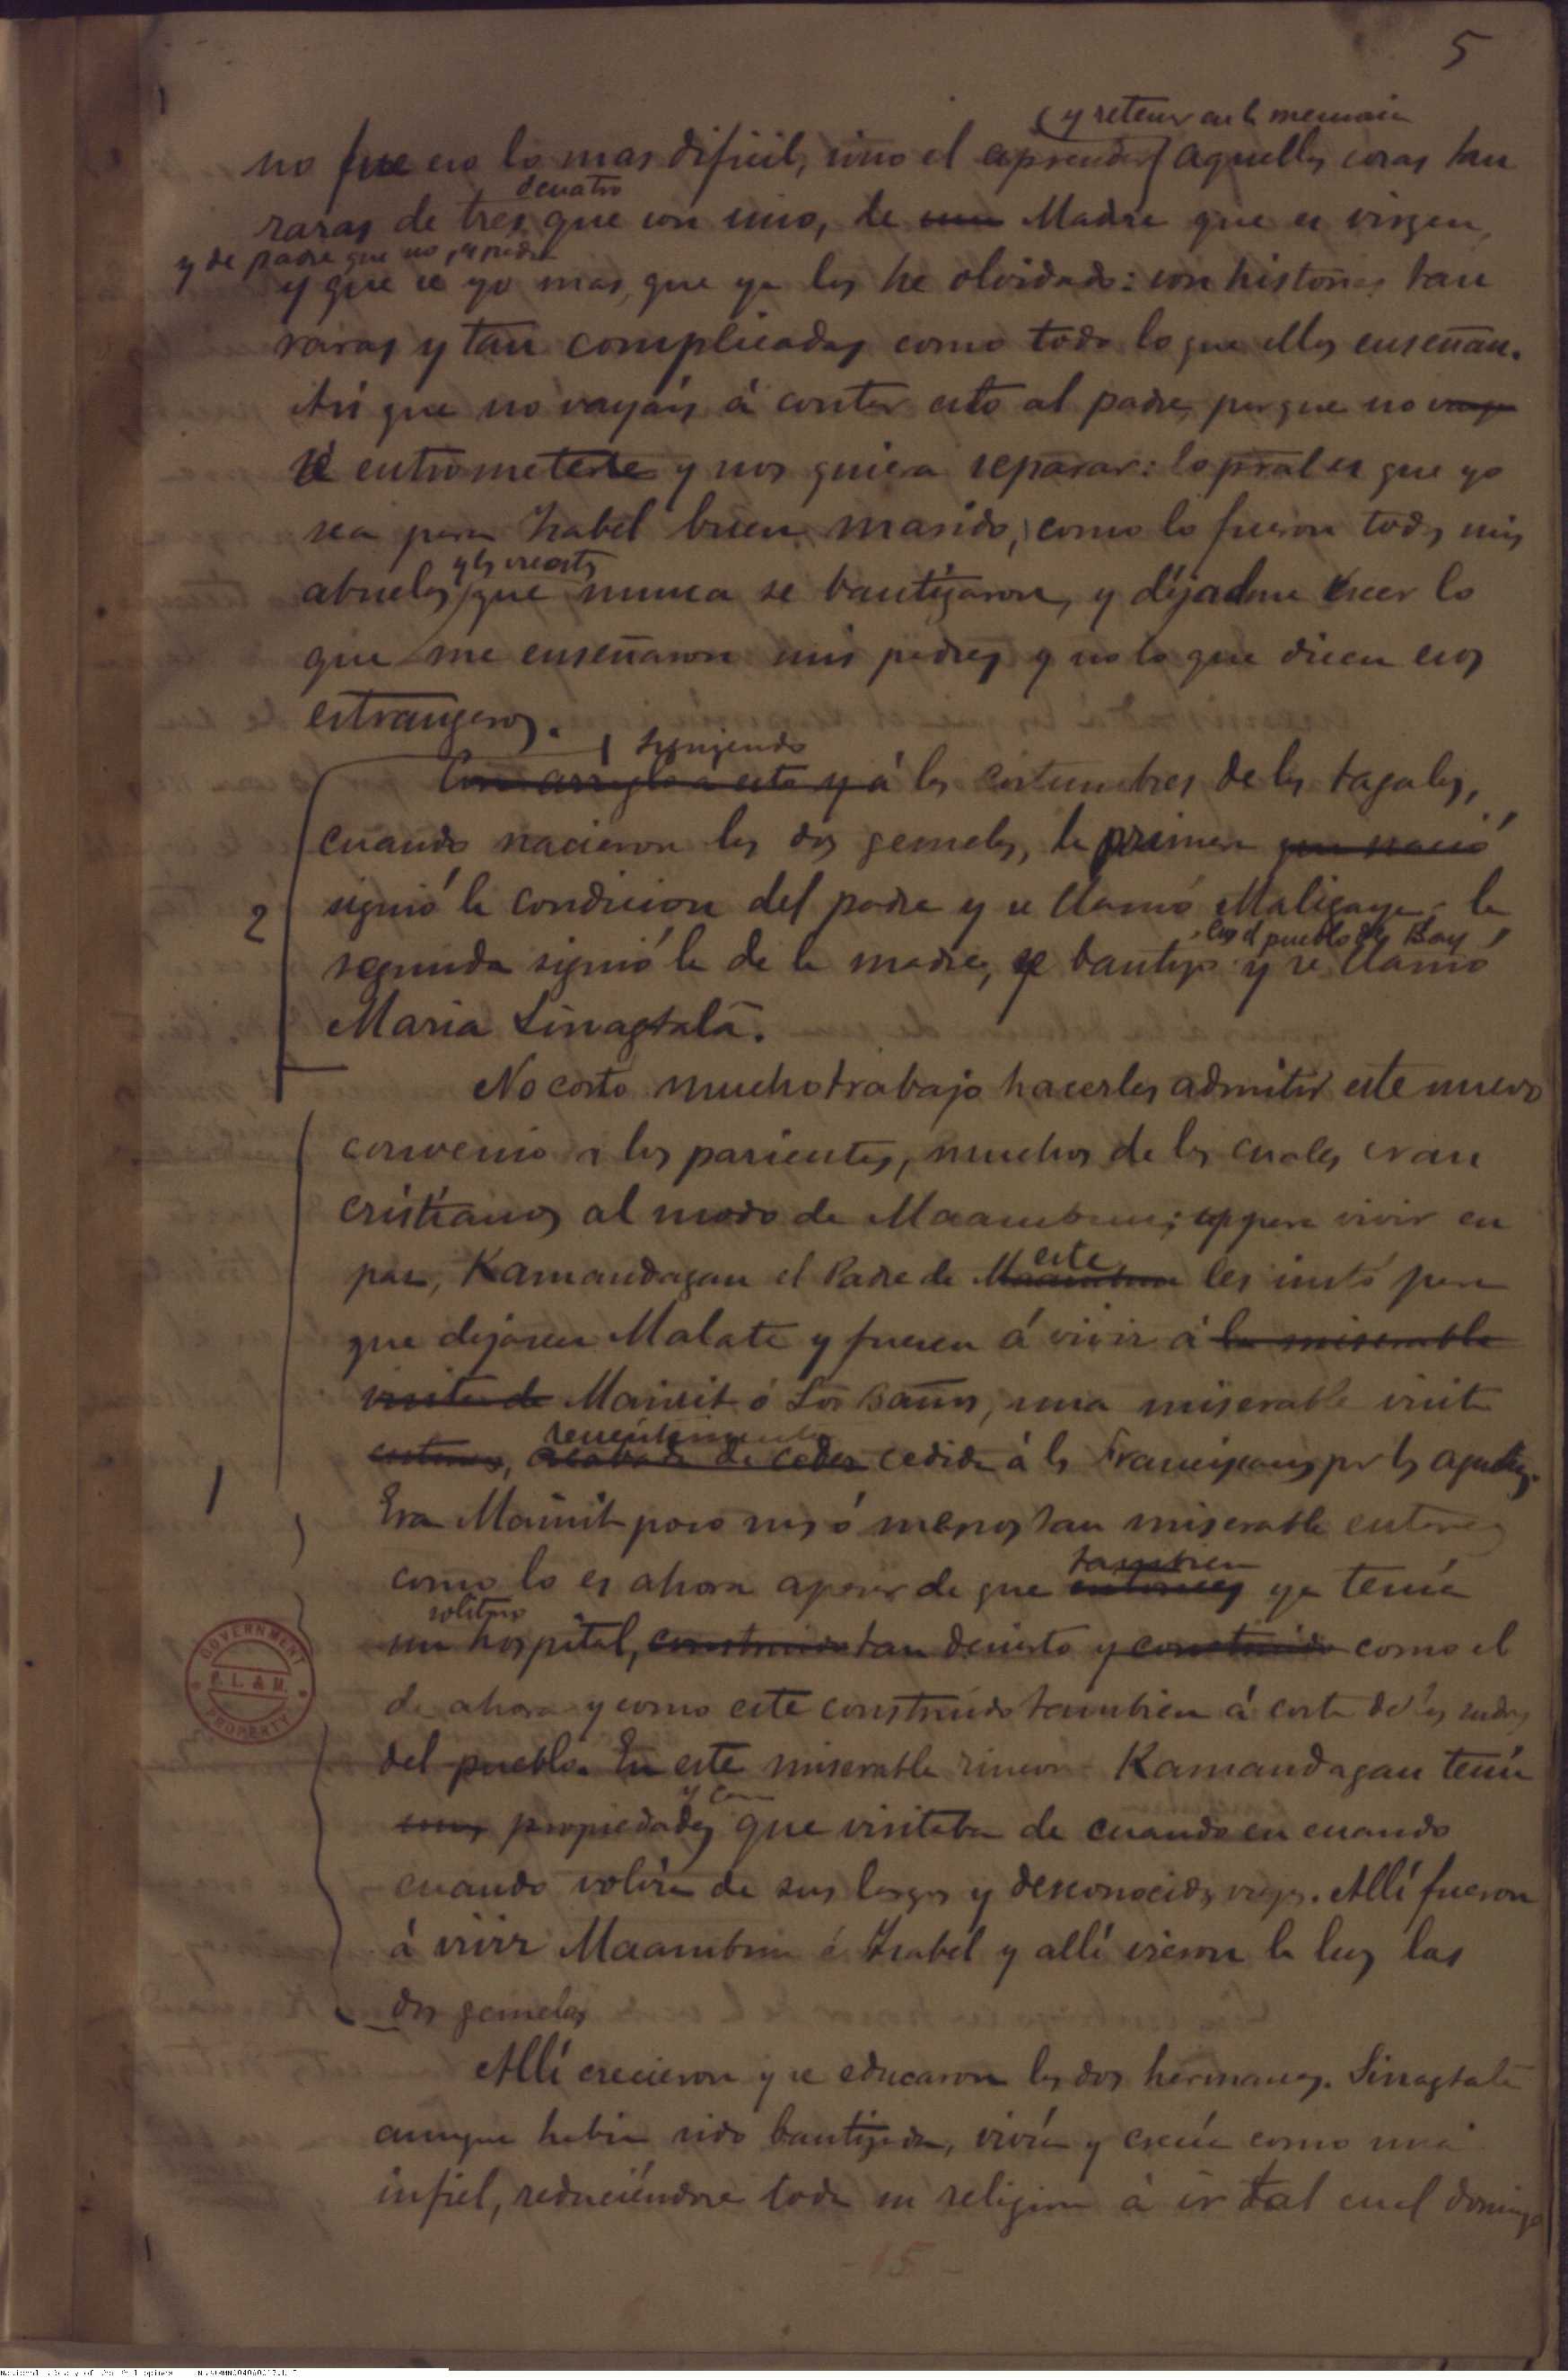 5
y retener en la memoria
no fue eso lo mas dificil, sino el aprender aquellas cosas tan
de cuatro
raras de tres que son uno, de una Madre que es virgen,
y de padre que no es padre
y que se yo mas, que ya los he olvidado: son historias tan
raras y tan complicadas como todo lo que ellos enseñan.
Asi que no vayáis á contar esto al padre, porque no vaya
á entrometerse y nos quiera separar: lo pral es que yo
sea para Isabel buen marido, como lo fueron todos mis
y los vuestros
abuelos que nunca se bautizaron, y déjadme creer lo
que me enseñaron mis padres y no lo que dicen esos
estrangeros.
siguiendo
Con arreglo a esto y á las costumbres de los tagalos,
cuando nacieron las dos gemelas, la primera que nació
2
siguió la condicion del padre y se llamó Maligaya, la
en el pueblo de Bay
segunda siguió la de la madre, se bautizó y se llamó
Maria Sinagtala.
No costó mucho trabajo hacerles admitir este nuevo
convenio a los parientes, muchos de los cuales eran
cristianos al modo de Maambun; para vivir en
este
paz, Kamandagan el Padre de Maambun les instó para
que dejasen Malate y fuesen á vivir á la miserable
visita de Mainit ó Los Baños, una miserable visita
recientemente
entonces, acababa de ceder cedida á los Franciscanos por los agustinos.
1
Era Mainit poco mas ó menos tan miserable entonces
tambien
como lo es ahora apesar de que entonces ya tenía
solitario
un hospital, construido tan desierto y construido como el
de ahora y como este construido tambien á costa de los sudores
del pueblo. En este miserable rincon Kamandagan tenía
y casa
unas propiedades que visitaba de cuando en cuando
cuando volvía de sus largos y desconocidos viajes. Allí fueron
á vivir Maambun é Isabel y allí vieron la luz las
dos gemelas
Allí crecieron y se educaron las dos hermanas. Sinagtala
aunque habia sido bautizada, vivía y creía como una
infiel, reduciéndose toda su religion á ir tal cual domingo
GOVERNMENT
P. L. & M.
PROPERTY
- 15 -